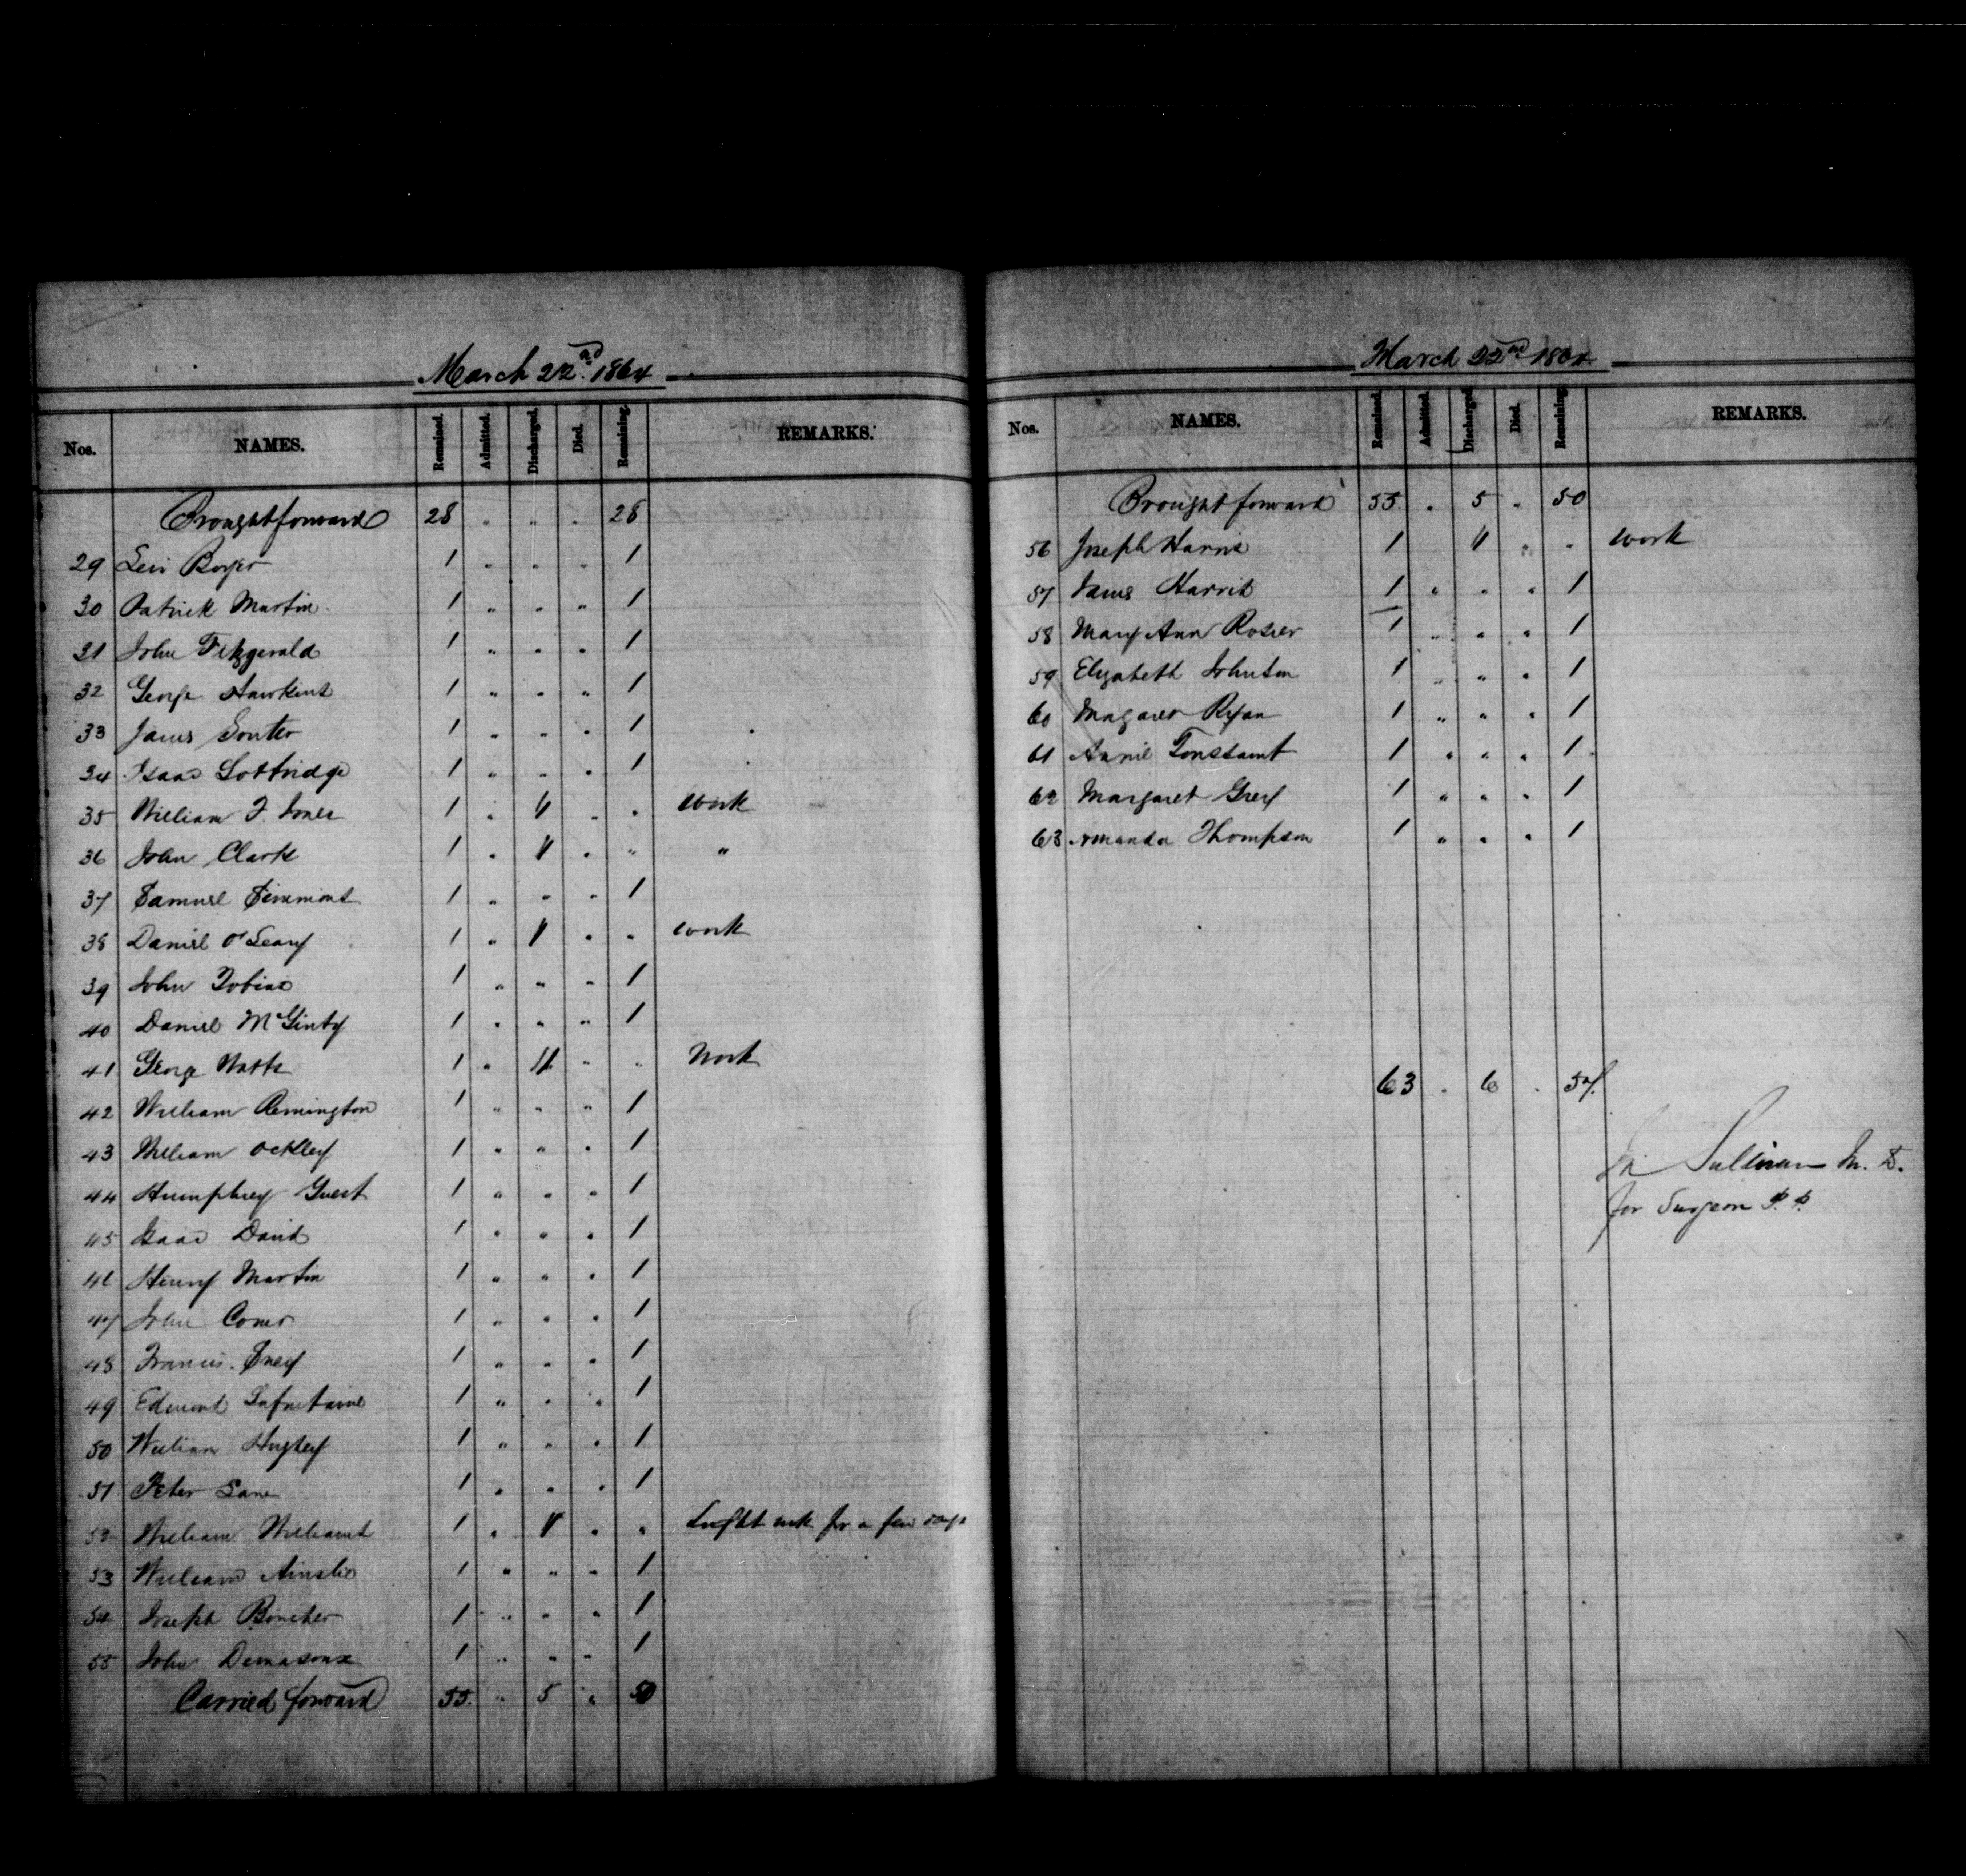 March 22nd 1864
Nos. NAMES. Remained. Admitted. Discharged. Died. Remaining. REMARKS.
Brought forward 28 " " " 28
29 Levi Boyer 1 " " " 1
30 Patrick Martin 1 " " " 1
31 John Fitzgerald 1 " " " 1
32 George Hawkins 1 " " " 1
33 James Souter 1 " " " 1
34 Isaac Lottridge 1 " " " 1
35 William F. Jones 1 " 1 " " work
36 John Clark 1 " 1 " " "
37 Samuel Simmons 1 " " " 1
38 Daniel O'Leary 1 " 1 " " work
39 John Tobias 1 " " " 1
40 Daniel McGinty 1 " " " 1
41 George Watts 1 " 1 " " Work
42 William Remington 1 " " " 1
43 William Ockley 1 " " " 1
44 Humphrey Guest 1 " " " 1
45 Isaac David 1 " " " 1
46 Henry Martin 1 " " " 1
47 John 1 " " " 1
48 Francis 1 " " " 1
49 Edmond Lafontaine 1 " " " 1
50 William Hughey 1 " " " 1
51 Peter Lane 1 " " " 1
52 William Williams 1 " 1 " " Light work for a few days
53 William Ainslie 1 " " " 1
54 Joseph Boucher 1 " " " 1
55 John 1 " " " 1
Carried forward 55 " 5 " 50
March 22nd 1864
Nos. NAMES. Remained. Admitted. Discharged. Died. Remaining. REMARKS.
Brought forward 55 " 5 " 50
56 Joseph Harris 1 1 " " work
57 James Harris 1 " " " 1
58 Mary Ann Rosier 1 " " " 1
59 Elizabeth Johnson 1 " " " 1
60 Magaret Ryan 1 " " " 1
61 Annie Toussaint 1 " " " 1
62 Margaret Grey 1 " " " 1
63 Amanda Thompson 1 " " " 1
63 " 6 " 57
Sullivan M.D.
for Surgeon P.P.